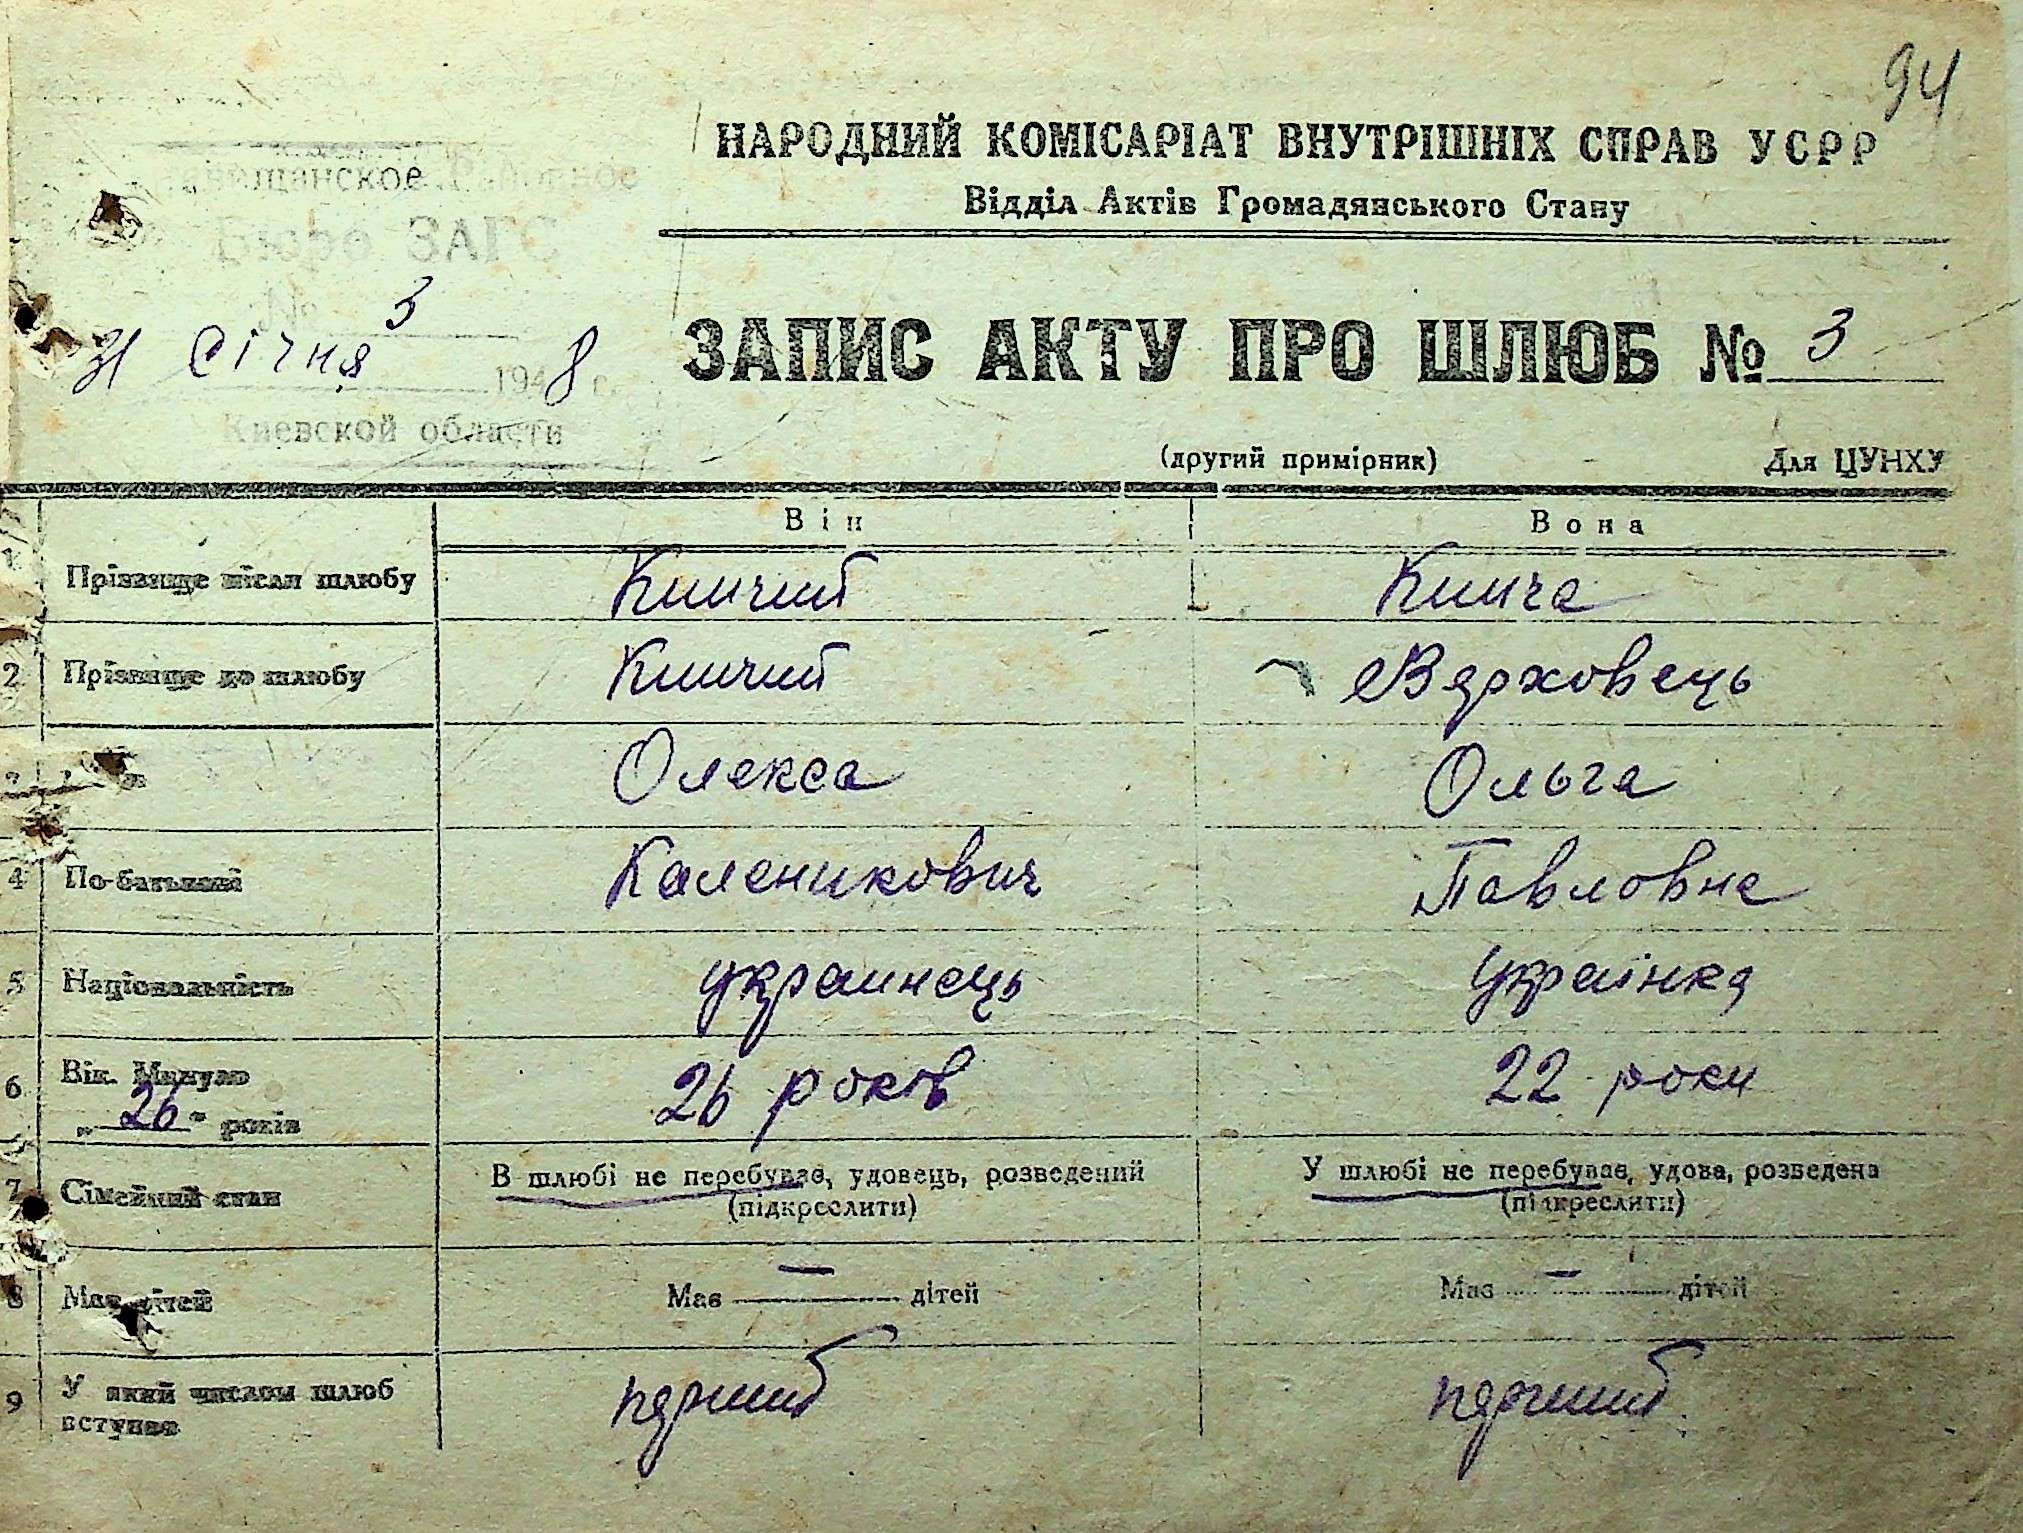 94
НАРОДНИЙ КОМІСАРІАТ ВНУТРІШНІХ СПРАВ УСРР
Відділ Актів Громадянського Стану
Бюро ЗАГС
№ 3
31 січня 1948 г.
Киевской области
ЗАПИС АКТУ ПРО ШЛЮБ № 3
(другий примірник) Для ЦУНХУ
Він Вона
1 Прізвище після шлюбу Кишчий Кишча
2 Прізвище до шлюбу Кишчий Верховець
3 Олекса Ольга
4 По-батькові Каленикович Павловна
5 Національність украинець українка
6 Вік. Минуло „26" років 26 років 22 роки
7 Сімейний стан В шлюбі не перебував, удовець, розведений У шлюбі не перебував, удова, розведена
(підкреслити) (підкреслити)
8 Має дітей Має — дітей Має — дітей
9 У який числом шлюб перший перший
вступає